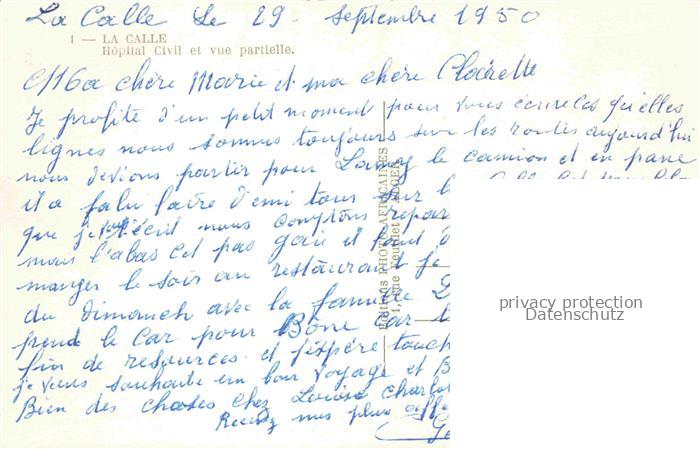 La Calle Le 29 Septembre 1950
1 — LA CALLE
Hôpital Civil et vue partielle.
Ma chère Marie et ma chère Clairette
Je profite d'un petit moment pour vous écrire ces quelles
lignes nous sommes toujours sur les routes aujourd'hui
nous devions partir pour Lamy le camion et en pane
il a falu faire demi tour sur
que je écrit nous comptons repar
mais l'abas cet pas gaie et faut
manger le soir au restaurant je
du dimanch avec la famille
prend le car pour Bône car
fin de resources et j'éspére touch
je vous souhaite un bon voyage et B
Bien des choses chez Louise Charlo
Recevez mes plus affe
Editions PHOTO-AFRICAINES
1, rue Feuillet ALGER
privacy protection
Datenschutz